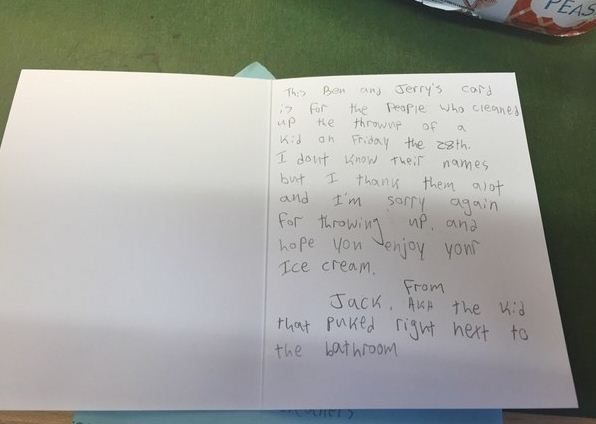 PEAS
This Ben and Jerry's card
is for the People who cleaned
up the throwup of a
kid on Friday the 28th.
I dont know their names
but I thank them alot
and I'm sorry again
for throwing up. and
hope you enjoy your
Ice cream.
From
Jack, AKA the kid
that puked right next to
the bathroom